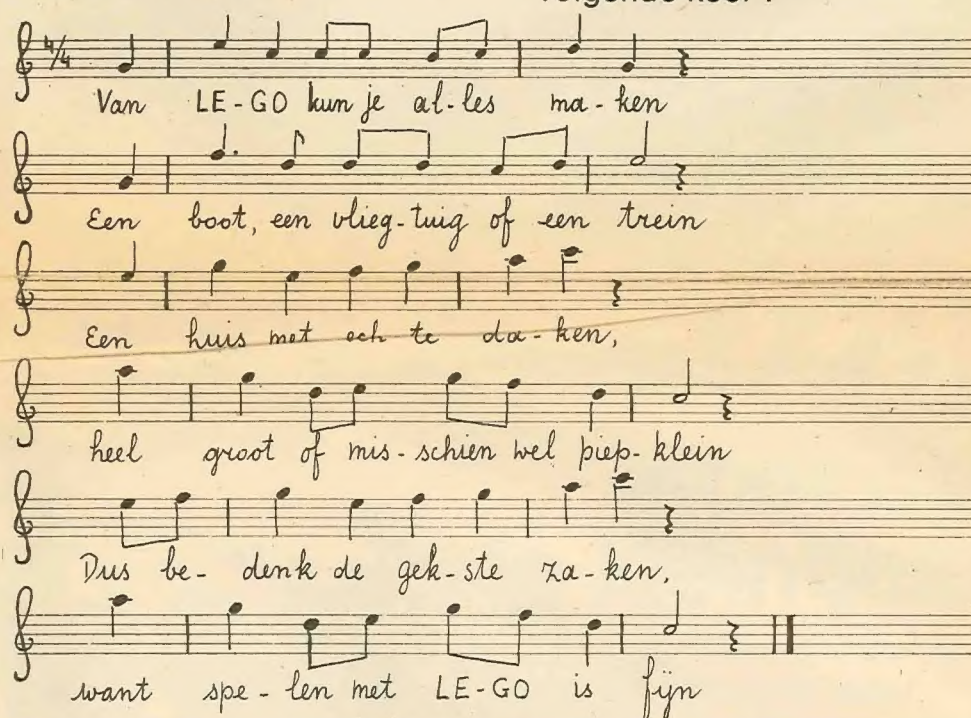 4/4
Van LE-GO kun je al-les ma-ken
Een boot, een vlieg-tuig of een trein
Een huis met ech te da-ken,
heel groot of mis-schien wel piep-klein
Dus be-denk de gek-ste za-ken,
want spe-len met LE-GO is fijn